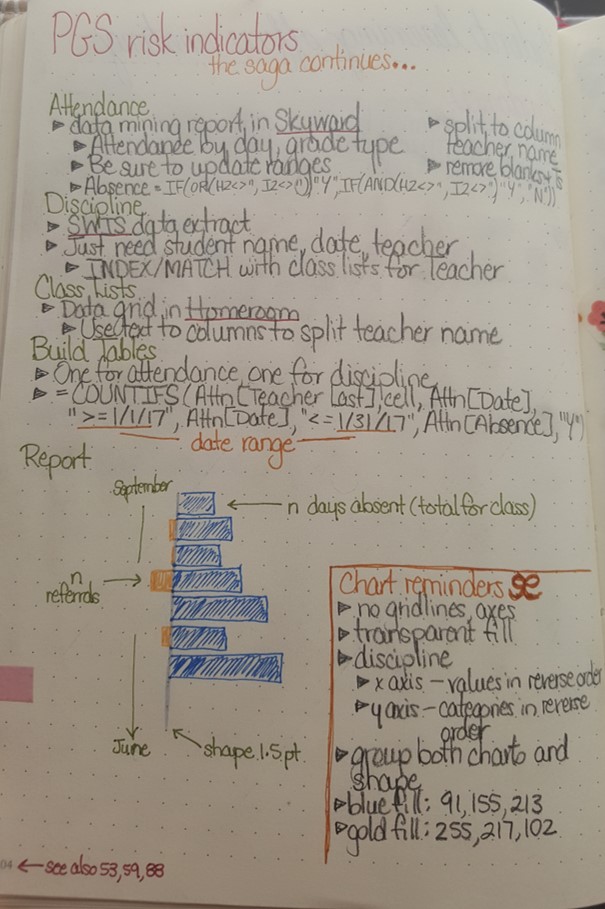 PGS risk indicators
the saga continues...
Attendance
▶ data mining report in Skyward
▶ Attendance by day, grade type
▶ Be sure to update ranges
▶ Absence = IF(OR(H2<>", I2<>")"Y",IF(AND(H2<>", I2<>")"Y","N"))
▶ split to column
teacher name
▶ remove blanks
Discipline
▶ SWIS data extract
▶ Just need student name, date, teacher
▶ INDEX/MATCH with class lists for teacher
Class Lists
▶ Data grid in Homeroom
▶ Use text to columns to split teacher name
Build Tables
▶ One for attendance, one for discipline
▶ =COUNTIFS(Attn[Teacher Last],cell, Attn[Date],
">=1/1/17", Attn[Date], "<=1/31/17", Attn[Absence],"Y")
date range
Report
September
n days absent (total for class)
n
referrals
June
shape 1.5pt
Chart reminders
▶ no gridlines, axes
▶ transparent fill
▶ discipline
▶ x axis – values in reverse order
▶ y axis – categories in reverse
order
▶ group both charts and
shape
▶ blue fill: 91,155,213
▶ gold fill: 255,217,102
04 ← see also 53,59,88